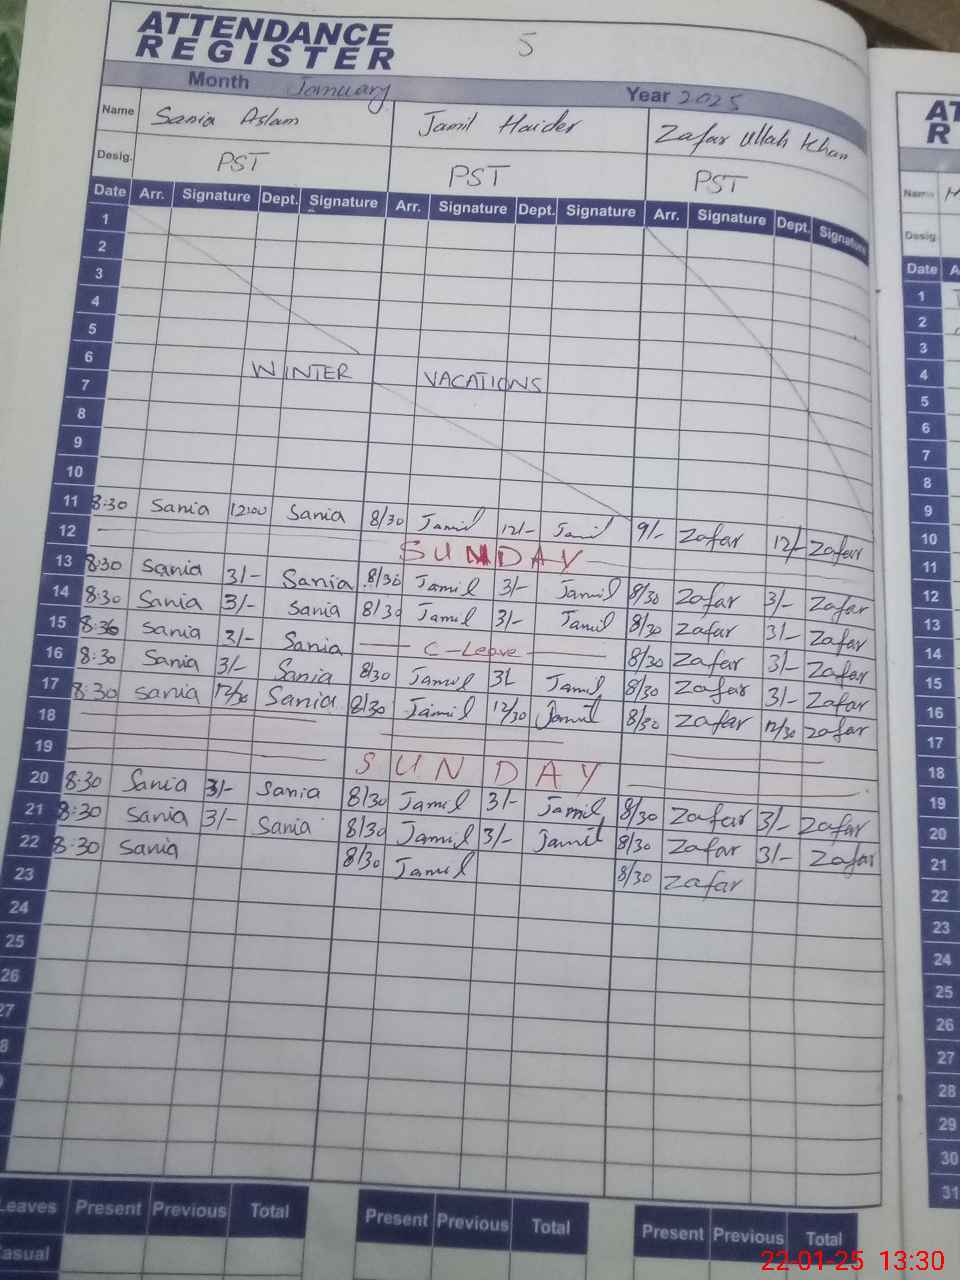 ATTENDANCE
REGISTER
5
Month January Year 2025
Name Sania Aslam Jamil Haider Zafar Ullah Khan
Desig. PST PST PST
Date Arr. Signature Dept. Signature Arr. Signature Dept. Signature Arr. Signature Dept. Signature
1
2
3
4
5
6 WINTER VACATIONS
7
8
9
10
11 8:30 Sania 12:00 Sania 8/30 Jamil 12/- Jamil 9/- Zafar 12/- Zafar
12 SUNDAY
13 8:30 Sania 3/- Sania 8/30 Jamil 3/- Jamil 8/30 Zafar 3/- Zafar
14 8:30 Sania 3/- Sania 8/30 Jamil 3/- Jamil 8/30 Zafar 3/- Zafar
15 8:30 Sania 3/- Sania C-Leave 8/30 Zafar 3/- Zafar
16 8:30 Sania 3/- Sania 8/30 Jamil 3/- Jamil 8/30 Zafar 3/- Zafar
17 8:30 Sania 12/30 Sania 8/30 Jamil 12/30 Jamil 8/30 Zafar 12/30 Zafar
18
19 SUNDAY
20 8:30 Sania 3/- Sania 8/30 Jamil 3/- Jamil 8/30 Zafar 3/- Zafar
21 8:30 Sania 3/- Sania 8/30 Jamil 3/- Jamil 8/30 Zafar 3/- Zafar
22 8:30 Sania 8/30 Jamil 8/30 Zafar
23
24
25
26
27
8
Leaves Present Previous Total Present Previous Total Present Previous Total
Casual
AT
R
Name
Desig.
Date A
1
2
3
4
5
6
7
8
9
10
11
12
13
14
15
16
17
18
19
20
21
22
23
24
25
26
27
28
29
30
31
22-01-25 13:30